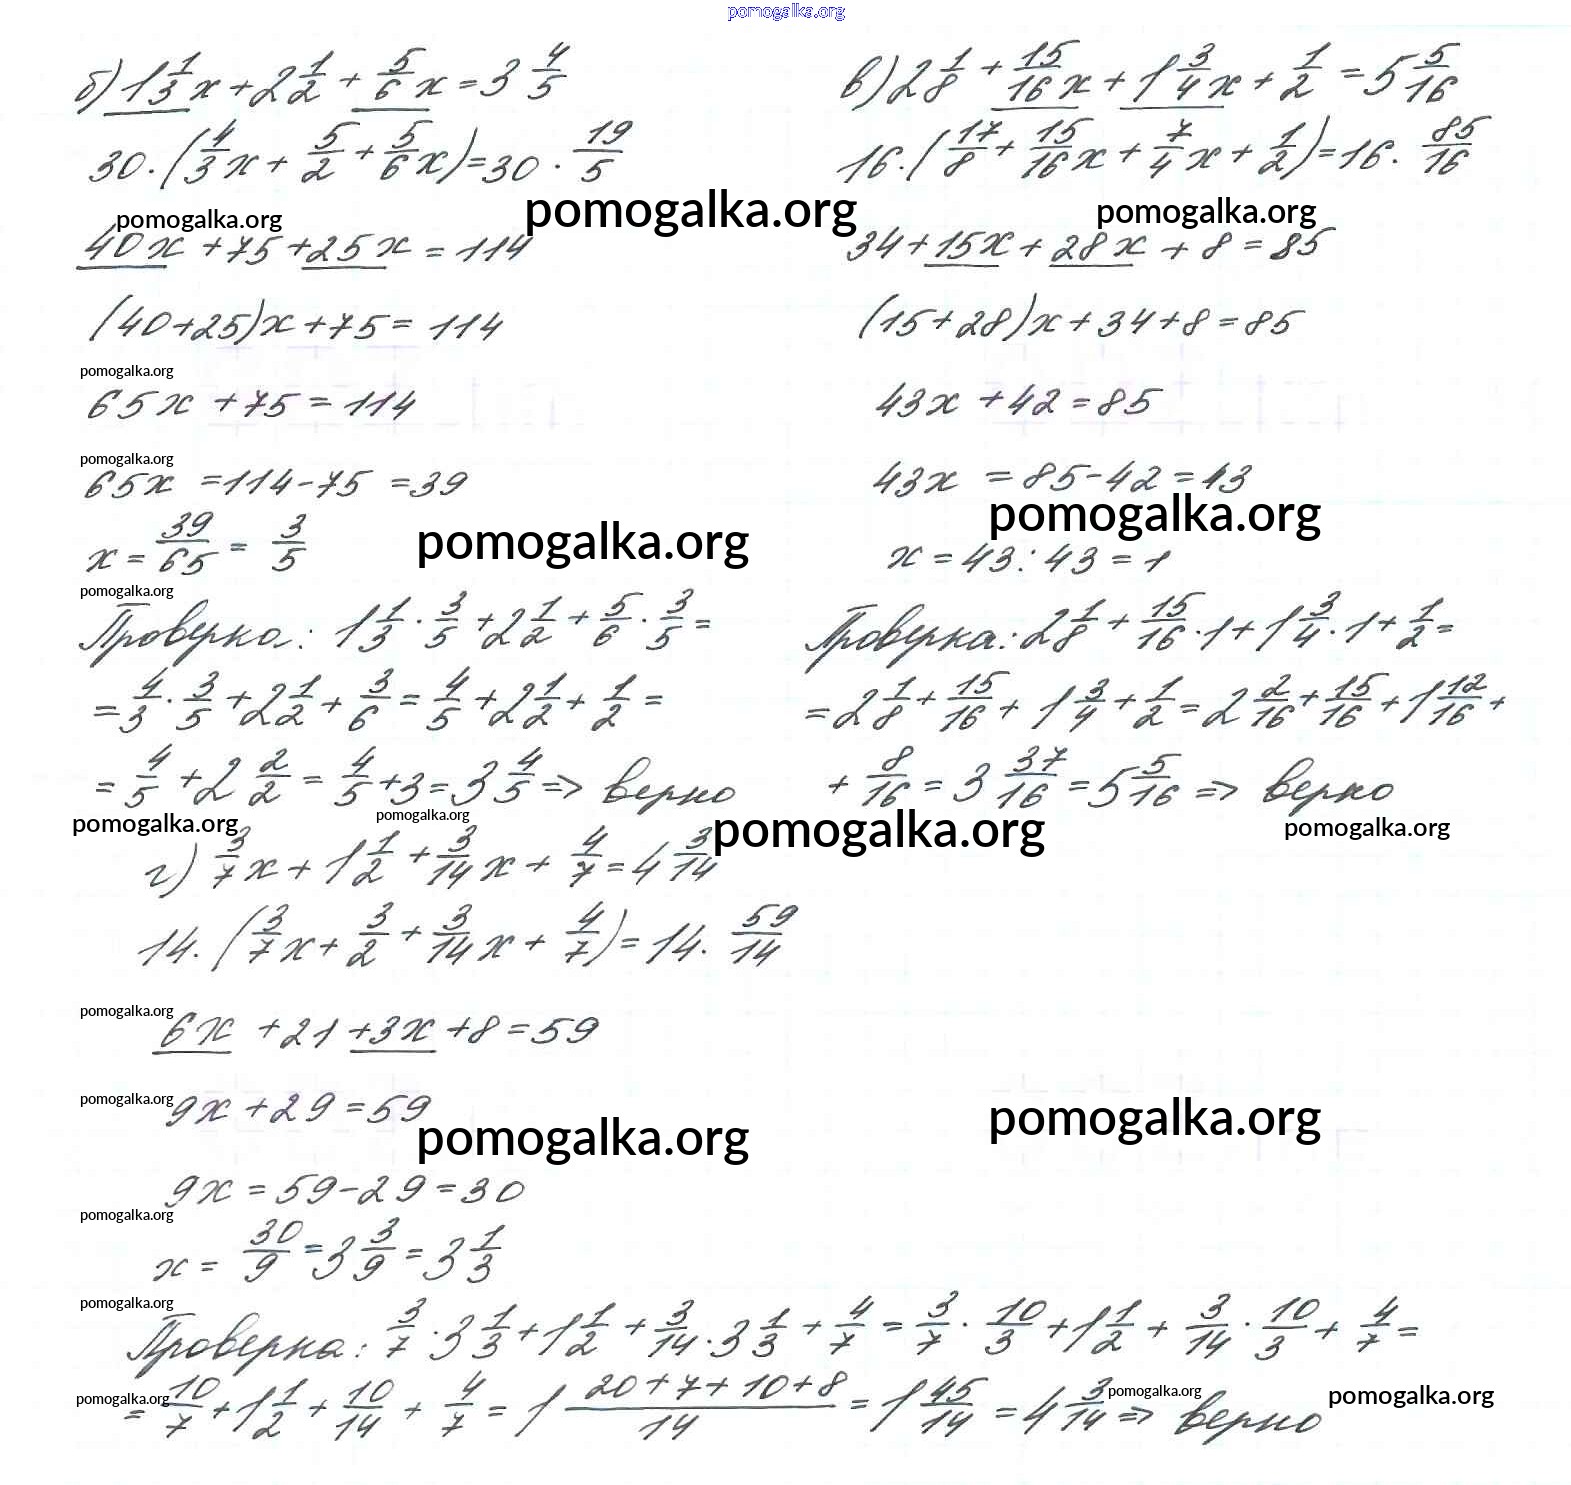 pomogalka.org
б) 1 1/3 x + 2 1/2 + 5/6 x = 3 4/5
30 · (4/3 x + 5/2 + 5/6 x) = 30 · 19/5
pomogalka.org
40x + 75 + 25x = 114
(40+25)x + 75 = 114
pomogalka.org
65x + 75 = 114
pomogalka.org
65x = 114 - 75 = 39
x = 39/65 = 3/5
pomogalka.org
pomogalka.org
Проверка: 1 1/3 · 3/5 + 2 1/2 + 5/6 · 3/5 =
= 4/3 · 3/5 + 2 1/2 + 3/6 = 4/5 + 2 1/2 + 1/2 =
= 4/5 + 2 2/2 = 4/5 + 3 = 3 4/5 => верно
pomogalka.org
pomogalka.org
в) 2 1/8 + 15/16 x + 1 3/4 x + 1/2 = 5 5/16
16 · (17/8 + 15/16 x + 7/4 x + 1/2) = 16 · 85/16
pomogalka.org
pomogalka.org
34 + 15x + 28x + 8 = 85
(15+28)x + 34 + 8 = 85
43x + 42 = 85
43x = 85 - 42 = 43
pomogalka.org
x = 43 : 43 = 1
Проверка: 2 1/8 + 15/16 · 1 + 1 3/4 · 1 + 1/2 =
= 2 1/8 + 15/16 + 1 3/4 + 1/2 = 2 2/16 + 15/16 + 1 12/16 +
+ 8/16 = 3 37/16 = 5 5/16 => верно
pomogalka.org
pomogalka.org
г) 3/7 x + 1 1/2 + 3/14 x + 4/7 = 4 3/14
14 · (3/7 x + 3/2 + 3/14 x + 4/7) = 14 · 59/14
pomogalka.org
6x + 21 + 3x + 8 = 59
pomogalka.org
9x + 29 = 59
pomogalka.org
pomogalka.org
9x = 59 - 29 = 30
pomogalka.org
x = 30/9 = 3 3/9 = 3 1/3
pomogalka.org
Проверка: 3/7 · 3 1/3 + 1 1/2 + 3/14 · 3 1/3 + 4/7 = 3/7 · 10/3 + 1 1/2 + 3/14 · 10/3 + 4/7 =
pomogalka.org
= 10/7 + 1 1/2 + 10/14 + 4/7 = 1 (20+7+10+8)/14 = 1 45/14 = 4 3/14 => верно
pomogalka.org
pomogalka.org